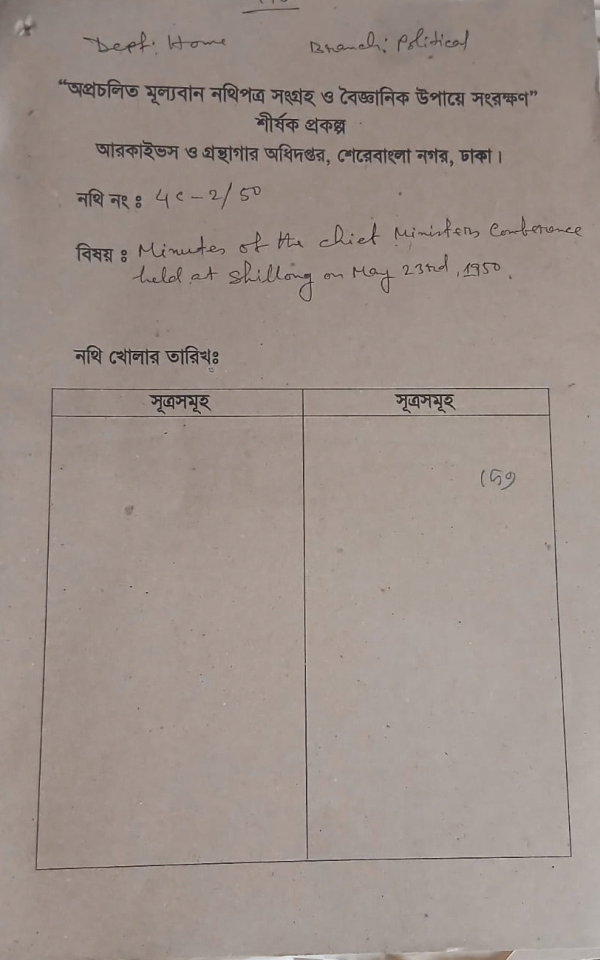 Dept: Home Branch: Political
“অপ্রচলিত মূল্যবান নথিপত্র সংগ্রহ ও বৈজ্ঞানিক উপায়ে সংরক্ষণ”
শীর্ষক প্রকল্প
আরকাইভস ও গ্রন্থাগার অধিদপ্তর, শেরেবাংলা নগর, ঢাকা।
নথি নং ঃ 4C-2/50
বিষয় ঃ Minutes of the Chief Ministers Conference
held at Shillong on May 23rd, 1950.
নথি খোলার তারিখঃ
সূত্রসমূহ সূত্রসমূহ